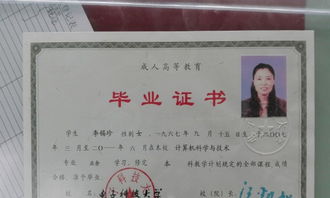 成人高等教育
毕业证书
学生 李锡珍 性别女，一九六七年 九 月 十五日生，于二〇〇七
年 三 月至二〇一〇 八 月在本校 计算机科学与技术
专业 学习，修完 本 科教学计划规定的全部课程，成绩
合格，准予毕业。
科技大学
校（院）长